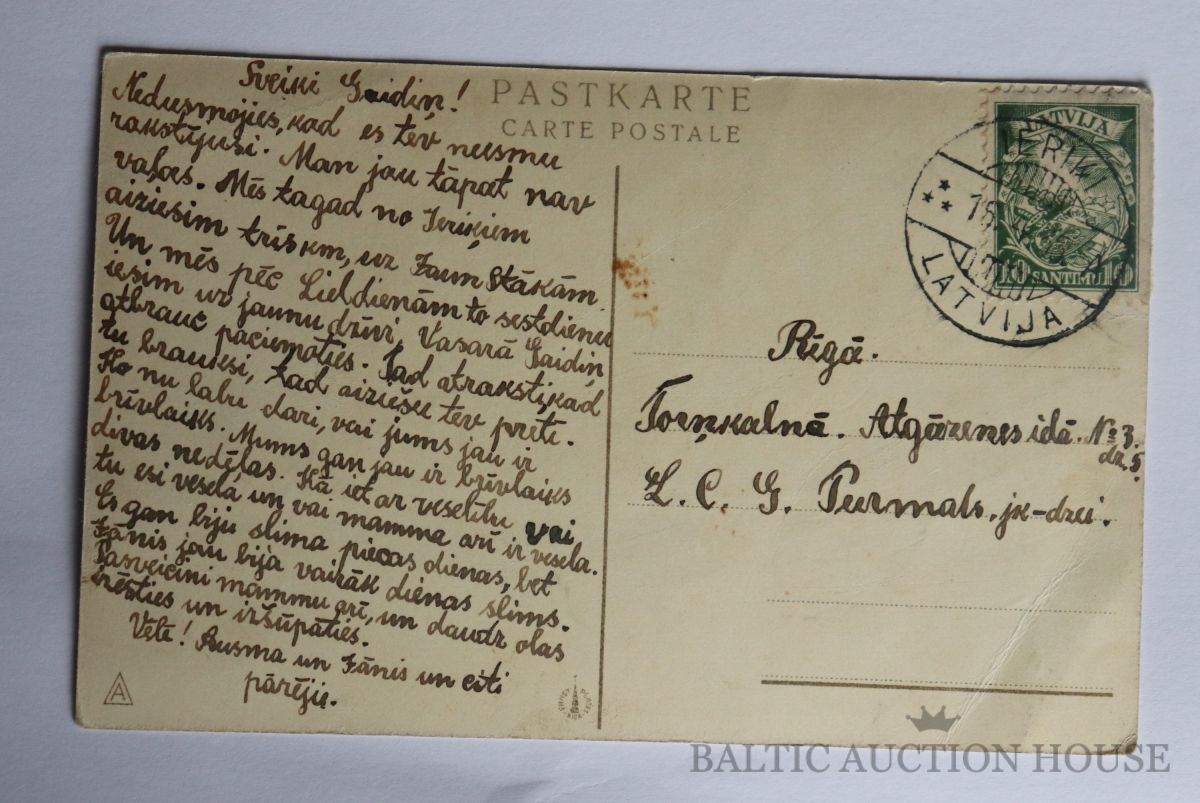 Sveiki Gaidiņ!
Nedusmojies, kad es tev neesmu
rakstījusi. Man jau tāpat nav
vaļas. Mēs tagad no Ieriķiem
aiziesim trīs km, uz Jaun Stākām
Un mēs pēc Lieldienām to sestdienu
iesim uz jaunu dzīvi, Vasarā Gaidiņ
atbrauc paciemoties. Tad atraksti, kad
tu brauksi, tad aiziešu tev pretī.
Ko nu labu dari, vai jums jau ir
brīvlaiks. Mums gan jau ir brīvlaiks
divas nedēļas. Kā iet ar veselību vai
tu esi vesela un vai mamma arī ir vesela.
Es gan biju slima piecas dienas, bet
Jānis jau bija vairāk dienas slims.
Pasveicini mammu arī, un daudz olas
ēsties un izšūpāties.
Vēlē! Ausma un Jānis un citi
pārējie.
PASTKARTE
CARTE POSTALE
LATVIJA
10 SANTIMU 10
IERIĶI
LATVIJA
Rīgā.
Torņkalnā. Atgāzenes ielā. № 3.
dz. 5
L. C. G. Purmals. jk-dzei.
A
BALTIC AUCTION HOUSE